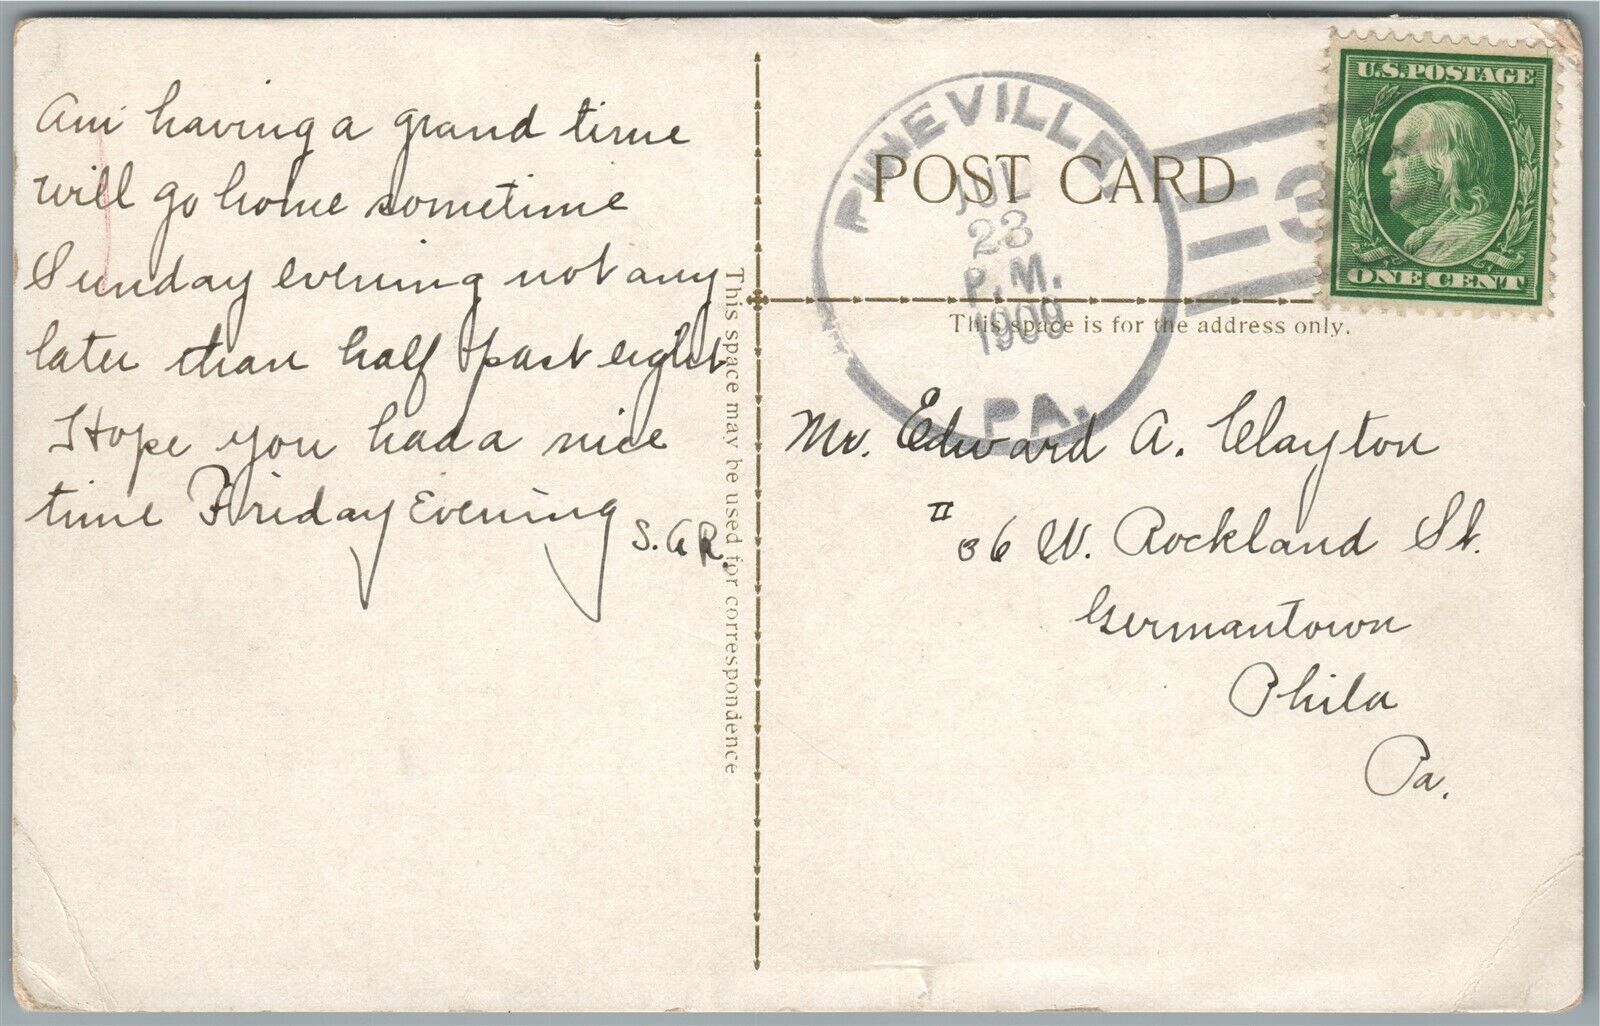 Am having a grand time
will go home sometime
Sunday evening not any
later than half past eight
Hope you had a nice
time Friday Evening
S.A.R.
This space may be used for correspondence
PINEVILLE
JUL
23
P.M.
1909
PA.
3
U.S. POSTAGE
ONE CENT
POST CARD
This space is for the address only.
Mr. Edward A. Clayton
36 W. Rockland St.
Germantown
Phila
Pa.